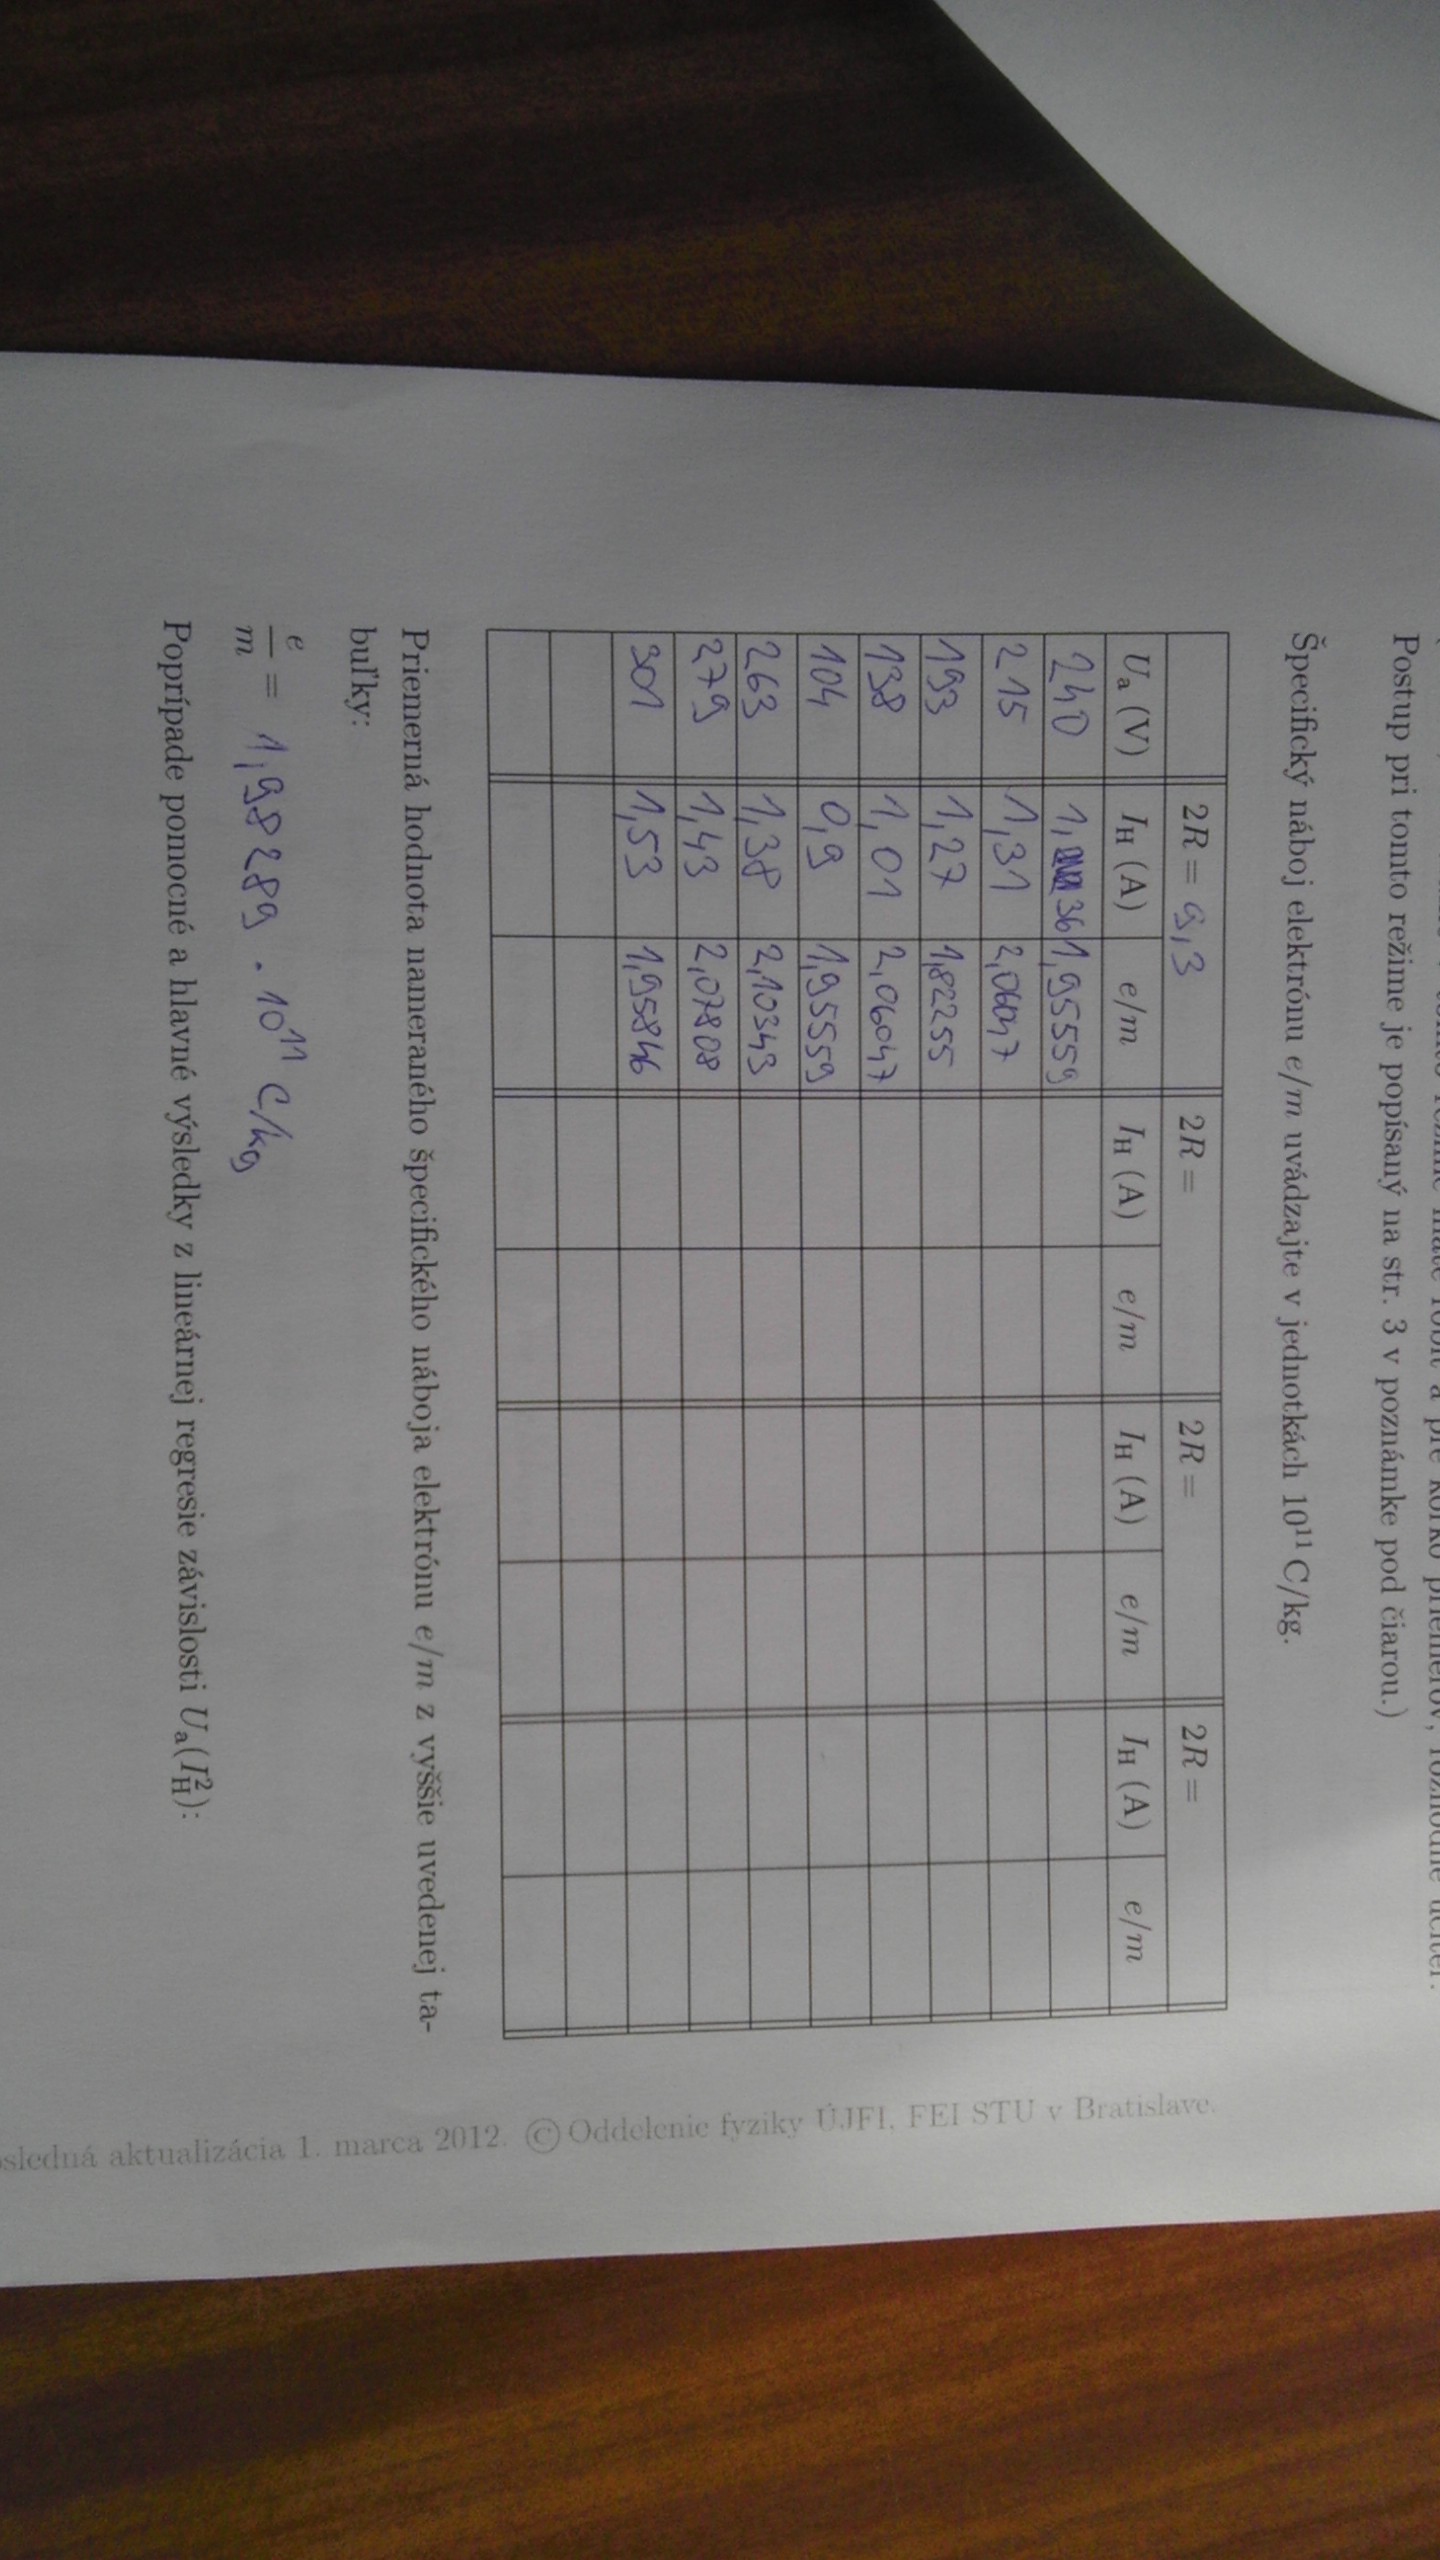 Postup pri tomto režime je popísaný na str. 3 v poznámke pod čiarou.)
Špecifický náboj elektrónu e/m uvádzajte v jednotkách 10¹¹ C/kg.
2R = 9,3 2R = 2R = 2R =
Uₐ (V) I_H (A) e/m I_H (A) e/m I_H (A) e/m I_H (A) e/m
240 1,36 1,95559
215 1,31 2,06047
193 1,27 1,82255
138 1,01 2,06047
104 0,9 1,95559
263 1,38 2,10343
279 1,43 2,07808
301 1,53 1,95846
Priemerná hodnota nameraného špecifického náboja elektrónu e/m z vyššie uvedenej ta-
buľky:
e/m = 1,98289 . 10¹¹ C/kg
Poprípade pomocné a hlavné výsledky z lineárnej regresie závislosti Uₐ(I_H²):
sledná aktualizácia 1. marca 2012. © Oddelenie fyziky ÚJFI, FEI STU v Bratislave.